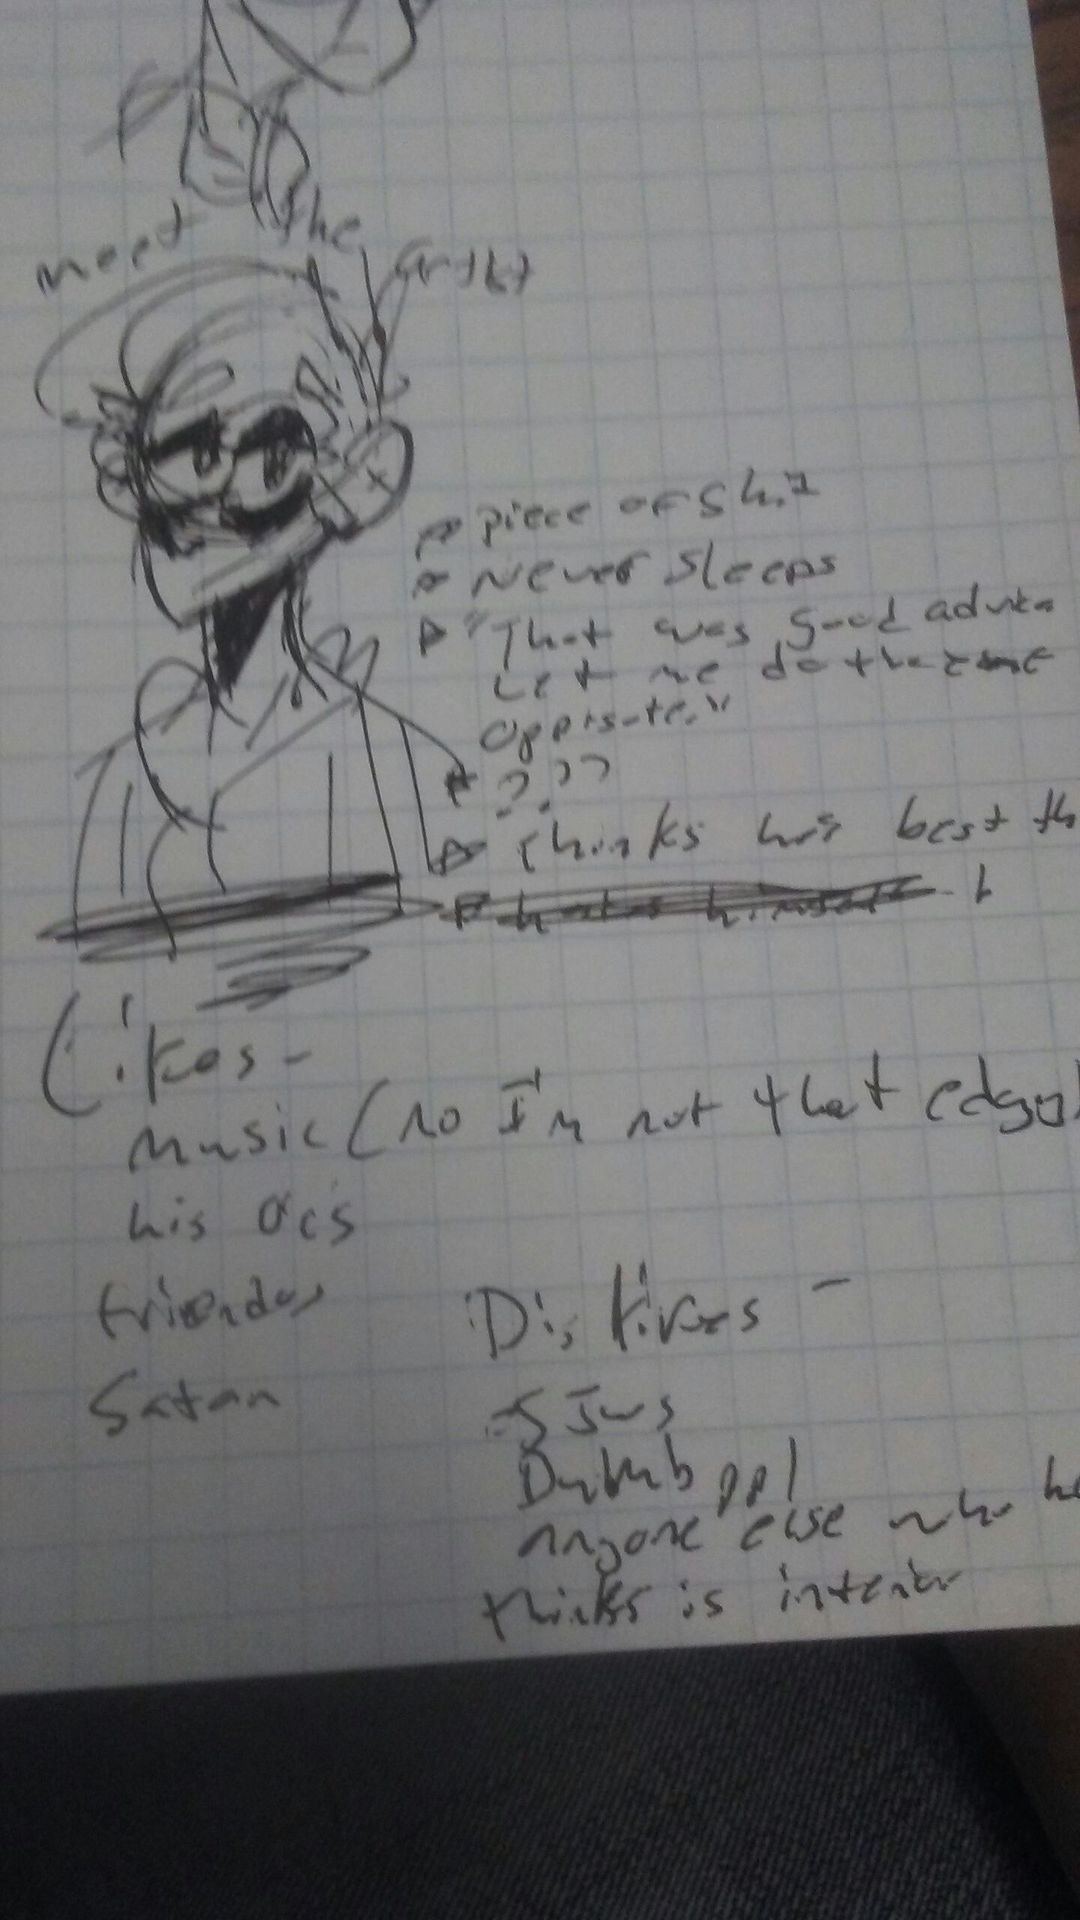 meet the Artist
piece of Shit
Never Sleeps
"That was good advice
Let me do the
Oppisite."
???
thinks he's best
Likes -
music (no I'm not that edgy)
his Ocs
friendos
Satan
Dislikes -
SJWs
Dumb ppl
anyone else who he
thinks is